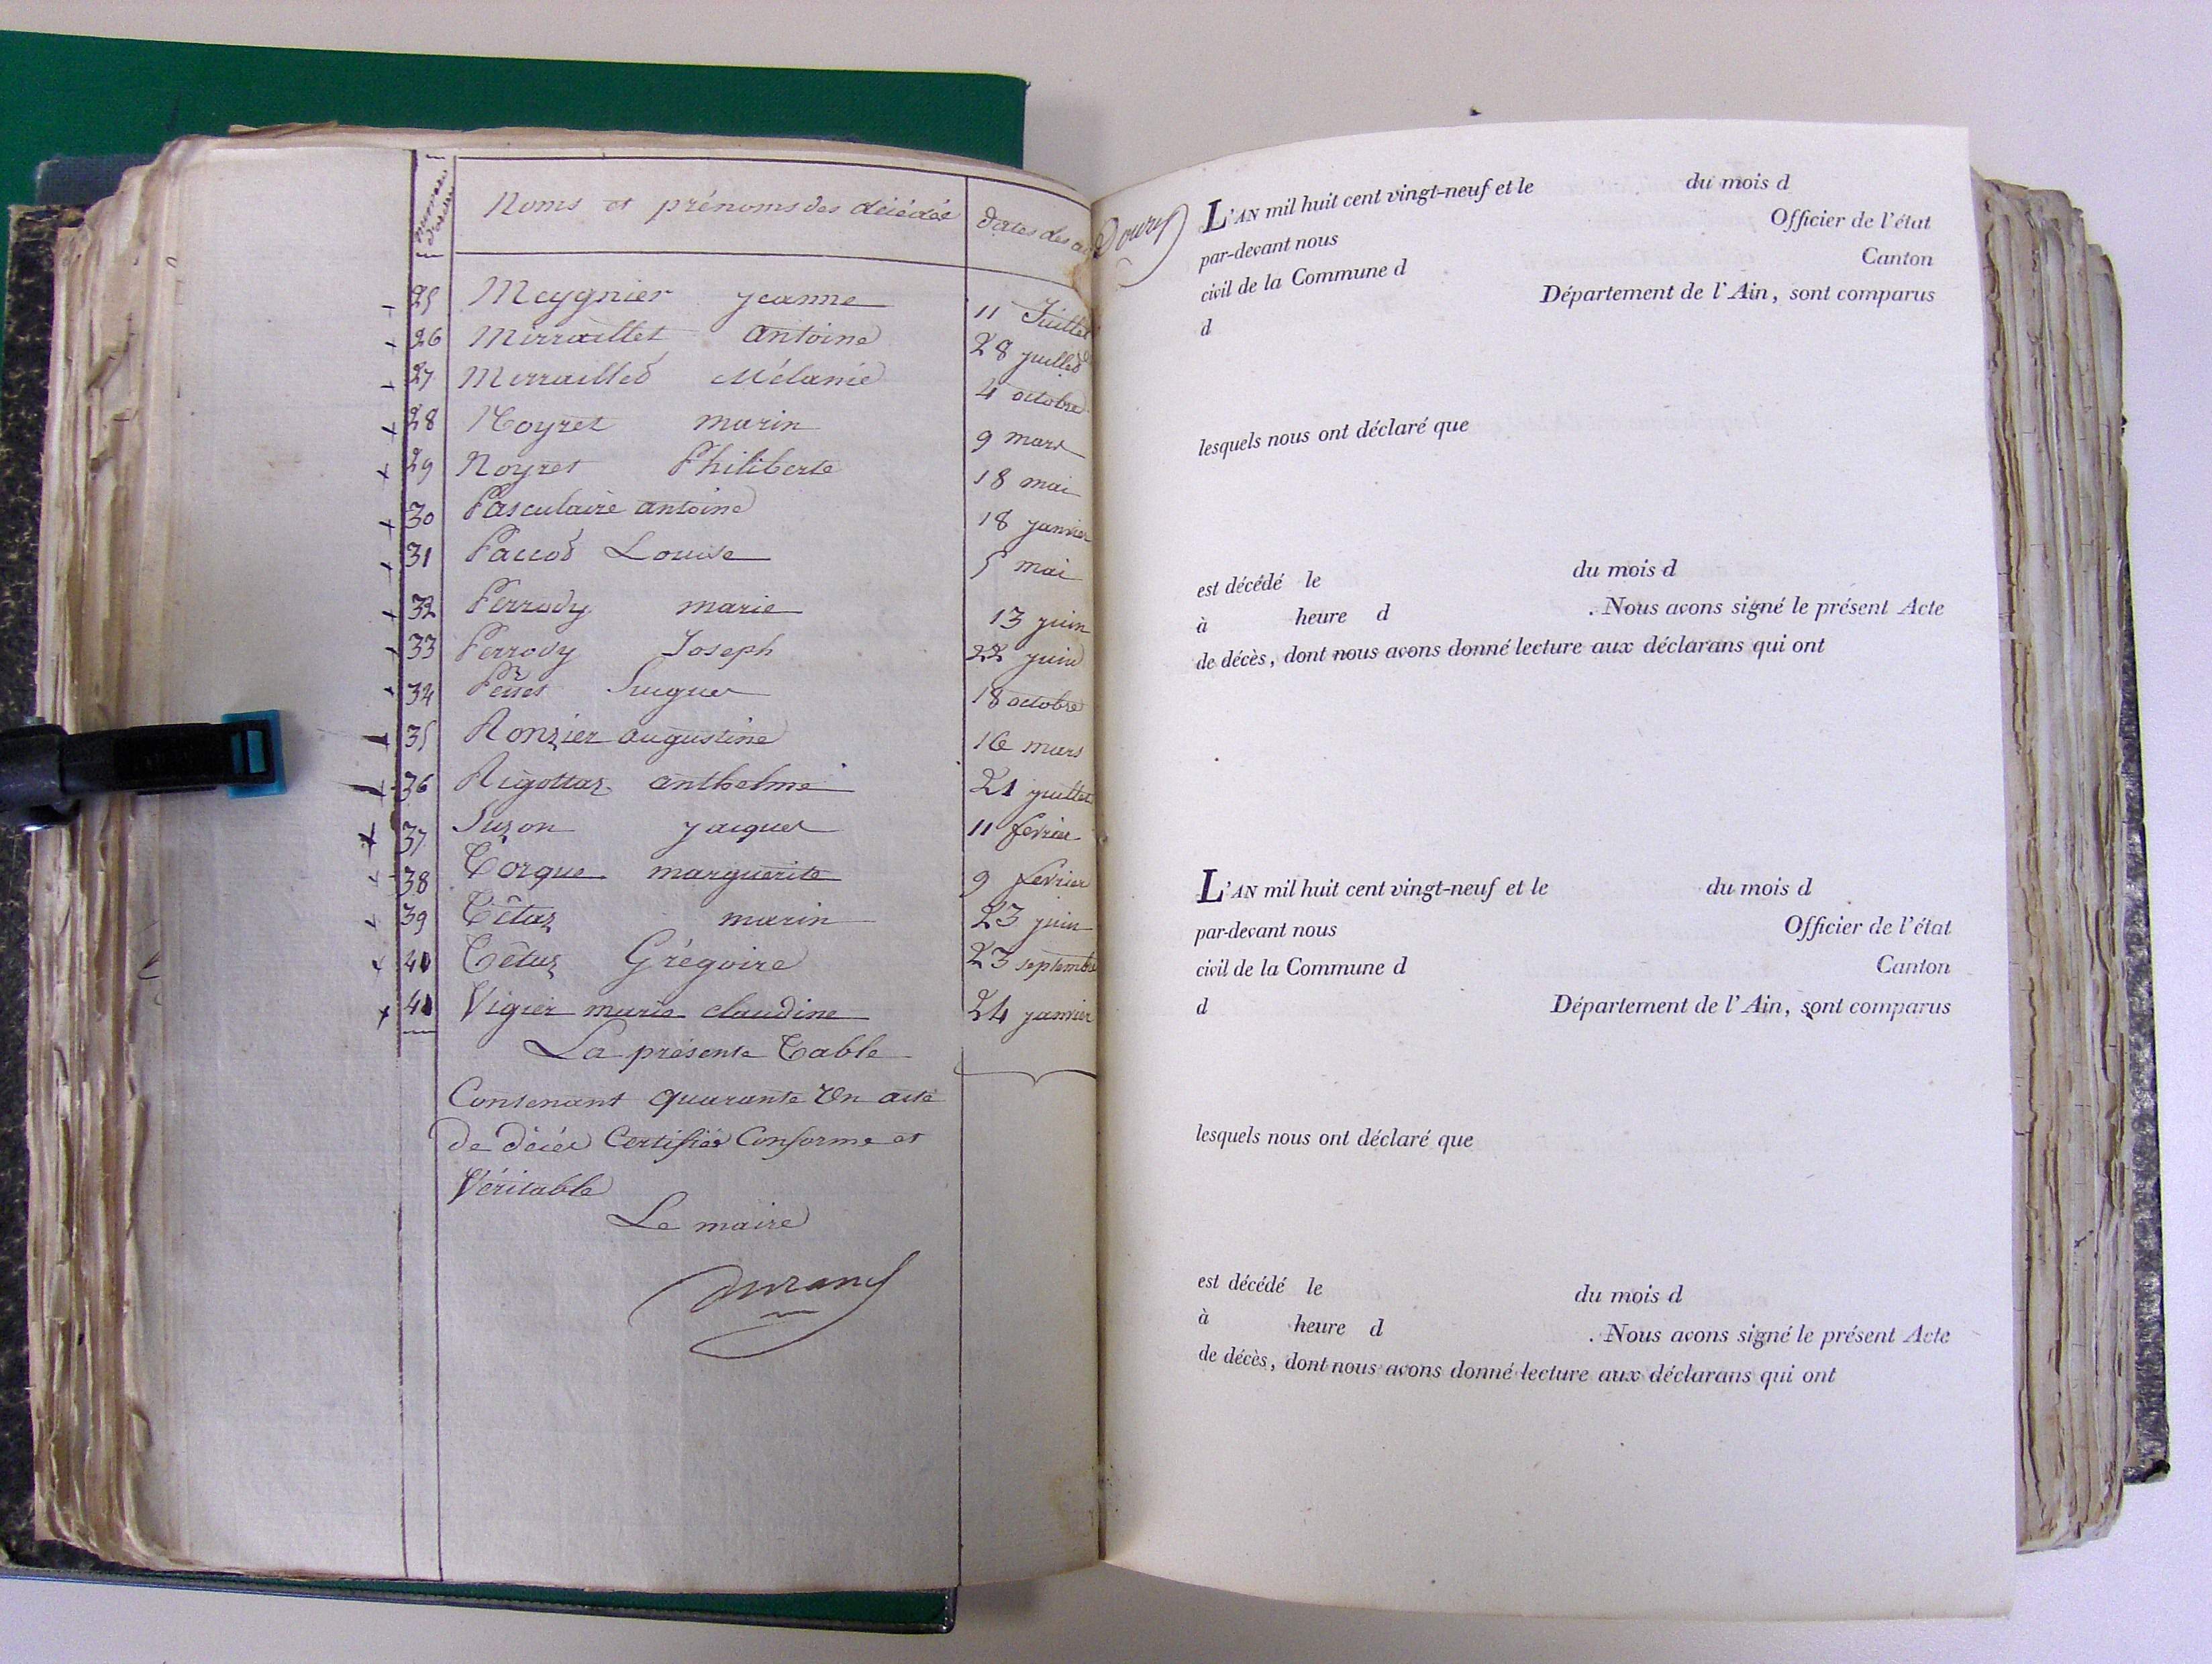 numéros d'ordre
Noms et prénoms des décédés
Dates des
25 Meygnier Jeanne 11 Juillet
26 Mirraillet antoine 28 juillet
27 Mirraillet Mélanie 4 octobre
28 Noyret marin 9 mars
29 Noyret Philiberte 18 mai
30 Pasculaire antoine 18 janvier
31 Paccod Louise 5 mai
32 Perrody marie 13 juin
33 Perrody Joseph 22 juin
34 Perret hugues 18 octobre
35 Ronzier augustine 16 mars
36 Rigottaz anthelme 21 juillet
37 Suzon jacques 11 fevrier
38 Torque marguerite 9 fevrier
39 Têtaz marin 23 juin
40 Têtaz Grégoire 23 septembre
41 Vigier marie claudine 24 janvier
La présente Table
Contenant quarante Un acte
de décès Certifiée Conforme et
Véritable
Le maire
Durand
L'AN mil huit cent vingt-neuf et le du mois d
par-devant nous Officier de l'état
civil de la Commune d Canton
d Département de l'Ain, sont comparus
lesquels nous ont déclaré que
est décédé le du mois d
à heure d . Nous avons signé le présent Acte
de décès, dont nous avons donné lecture aux déclarans qui ont
L'AN mil huit cent vingt-neuf et le du mois d
par-devant nous Officier de l'état
civil de la Commune d Canton
d Département de l'Ain, sont comparus
lesquels nous ont déclaré que
est décédé le du mois d
à heure d . Nous avons signé le présent Acte
de décès, dont nous avons donné lecture aux déclarans qui ont